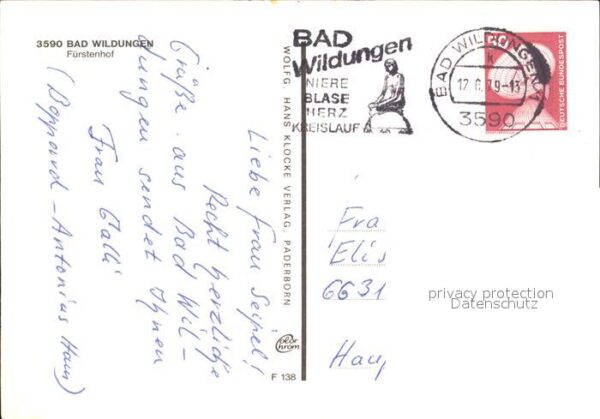 3590 BAD WILDUNGEN
Fürstenhof
Liebe Frau Seipel!
Recht herzliche
Grüße aus Bad Wil-
dungen sendet Ihnen
Frau Galli
(Boppard - Antonius Haus)
WOLFG. HANS KLOCKE VERLAG, PADERBORN
color
chrom
F 138
BAD
Wildungen
NIERE
BLASE
HERZ
KREISLAUF
BAD WILDUNGEN 1
k
12.6.79-13
3590
DEUTSCHE BUNDESPOST
Fra
Elis
6631
Hau
privacy protection
Datenschutz